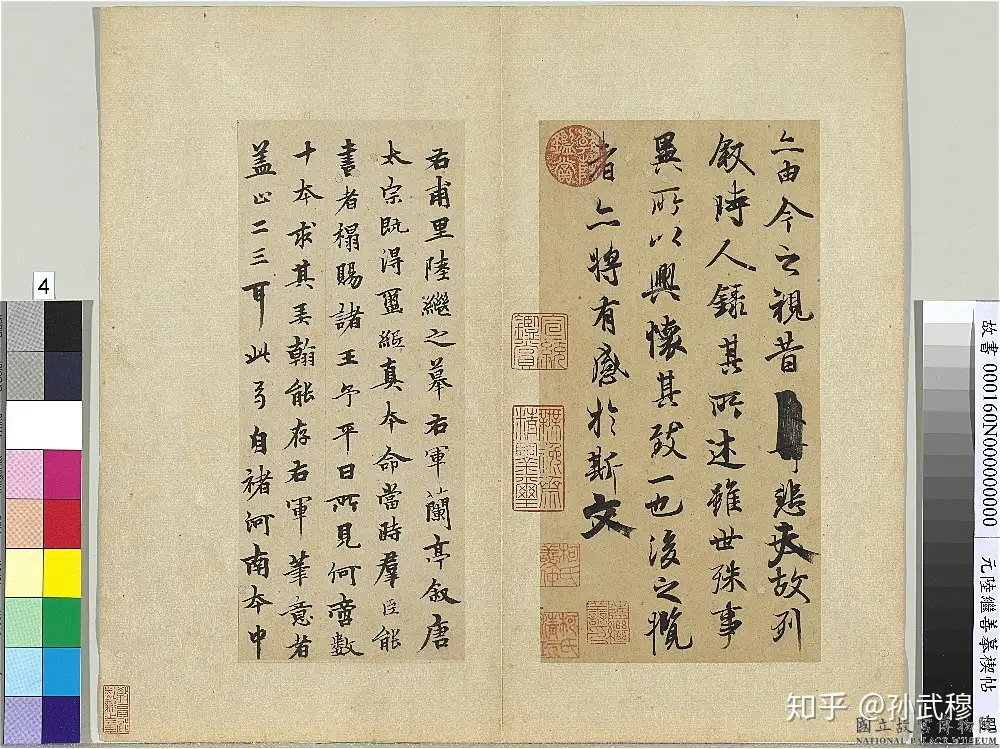 亦由今之視昔 悲夫故列
叙時人錄其所述雖世殊事
異所以興懷其致一也後之攬
者亦將有感於斯文
右甫里陸繼之摹右軍蘭亭叙唐
太宗既得璽縱真本命當時羣臣能
書者搨賜諸王予平日所見何啻數
十本求其弄翰能存右軍筆意者
盖止二三耳此爲自褚河南本中
4
故書 000160N000000000
元陸繼善摹禊帖
知乎 @孫武穆
國立故宮博物院
NATIONAL PALACE MUSEUM